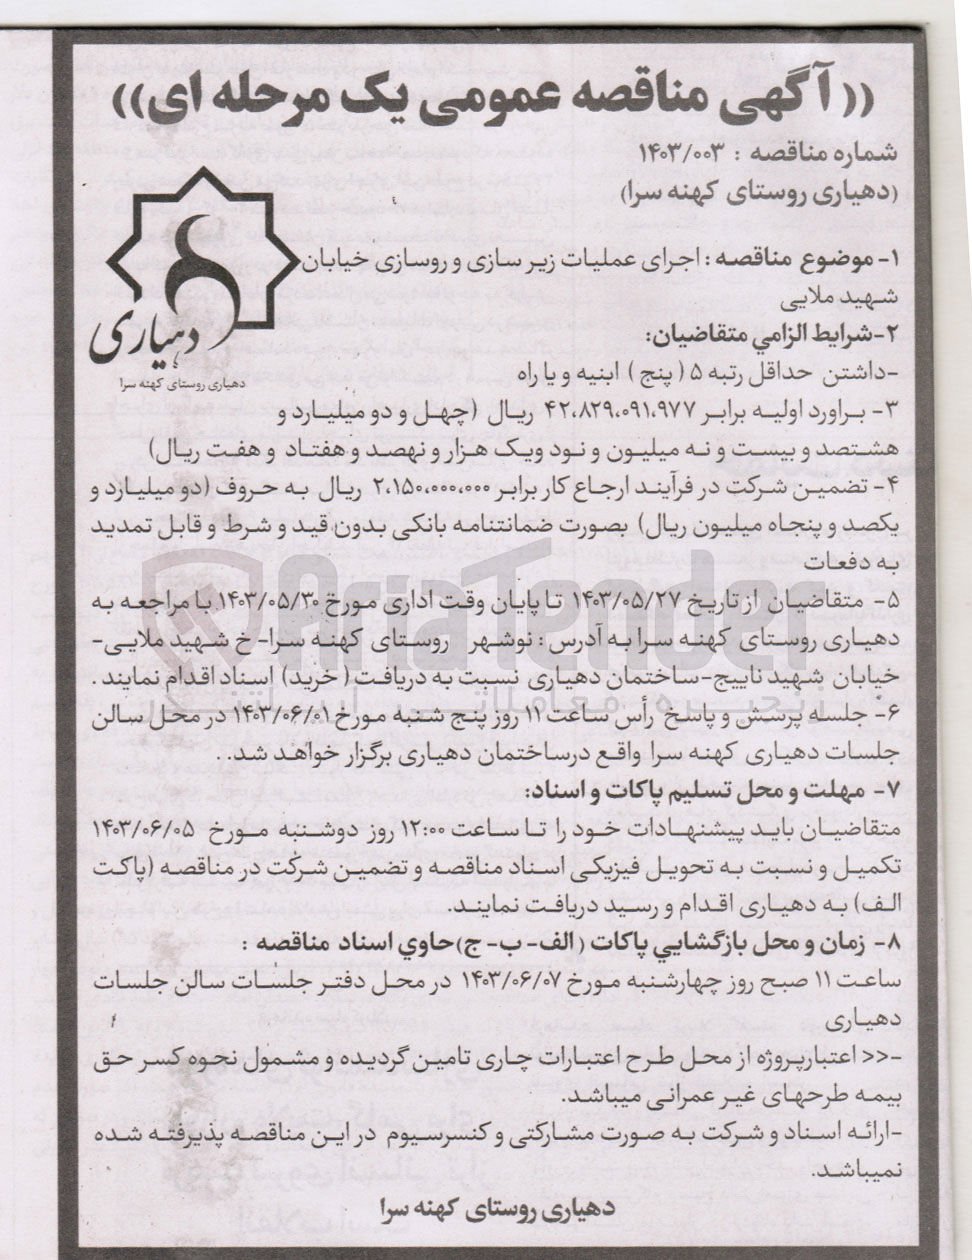 ((آگهی مناقصه عمومی یک مرحله ای))
شماره مناقصه : ۱۴۰۳/۰۰۳
(دهیاری روستای کهنه سرا)
دهیاری
دهیاری روستای کهنه سرا
۱- موضوع مناقصه : اجرای عملیات زیر سازی و روسازی خیابان
شهید ملایی
۲-شرایط الزامي متقاضیان:
-داشتن حداقل رتبه ۵ ( پنج ) ابنیه و یا راه
۳- براورد اولیه برابر ۴۲،۸۲۹،۰۹۱،۹۷۷ ریال (چهل و دو میلیارد و
هشتصد و بیست و نه میلیون و نود ویک هزار و نهصد و هفتاد و هفت ریال)
۴- تضمین شرکت در فرآیند ارجاع کار برابر ۲،۱۵۰،۰۰۰،۰۰۰ ریال به حروف (دو میلیارد و
یکصد و پنجاه میلیون ریال) بصورت ضمانتنامه بانکی بدون قید و شرط و قابل تمدید
به دفعات
۵- متقاضیان از تاریخ ۱۴۰۳/۰۵/۲۷ تا پایان وقت اداری مورخ ۱۴۰۳/۰۵/۳۰ با مراجعه به
دهیاری روستای کهنه سرا به آدرس : نوشهر روستای کهنه سرا- خ شهید ملایی-
خیابان شهید تاییج-ساختمان دهیاری نسبت به دریافت (خرید) اسناد اقدام نمایند .
۶- جلسه پرسش و پاسخ رأس ساعت ۱۱ روز پنج شنبه مورخ ۱۴۰۳/۰۶/۰۱ در محل سالن
جلسات دهیاری کهنه سرا واقع درساختمان دهیاری برگزار خواهد شد .
۷- مهلت و محل تسلیم پاکات و اسناد:
متقاضیان باید پیشنهادات خود را تا ساعت ۱۲:۰۰ روز دوشنبه مورخ ۱۴۰۳/۰۶/۰۵
تکمیل و نسبت به تحویل فیزیکی اسناد مناقصه و تضمین شرکت در مناقصه (پاکت
الف) به دهیاری اقدام و رسید دریافت نمایند.
۸- زمان و محل بازگشایي پاکات (الف- ب- ج)حاوي اسناد مناقصه :
ساعت ۱۱ صبح روز چهارشنبه مورخ ۱۴۰۳/۰۶/۰۷ در محل دفتر جلسات سالن جلسات
دهیاری
-<< اعتبارپروژه از محل طرح اعتبارات جاری تامین گردیده و مشمول نحوه کسر حق
بیمه طرحهای غیر عمرانی میباشد.
-ارائه اسناد و شرکت به صورت مشارکتی و کنسرسیوم در این مناقصه پذیرفته شده
نمیباشد.
دهیاری روستای کهنه سرا
AriaTender